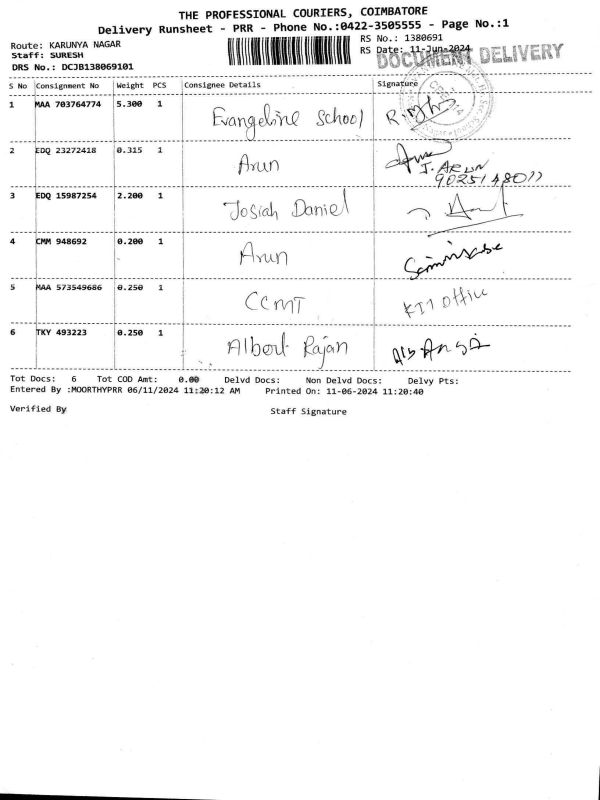 THE PROFESSIONAL COURIERS, COIMBATORE
Delivery Runsheet - PRR - Phone No.:0422-3505555 - Page No.:1
Route: KARUNYA NAGAR
Staff: SURESH
DRS No.: DCJB138069101
RS No.: 1380691
RS Date: 11-Jun-2024
DOCUMENT DELIVERY
S No Consignment No Weight PCS Consignee Details Signature
1 MAA 703764774 5.300 1 Evangeline School
2 EDQ 23272418 0.315 1 Arun
J. ARUN
9025148077
3 EDQ 15987254 2.200 1 Josiah Daniel
4 CMM 948692 0.200 1 Arun
5 MAA 573549686 0.250 1 CCMT KIT office
6 TKY 493223 0.250 1 Albert Rajan
Tot Docs: 6 Tot COD Amt: 0.00 Delvd Docs: Non Delvd Docs: Delvy Pts:
Entered By :MOORTHYPRR 06/11/2024 11:20:12 AM Printed On: 11-06-2024 11:20:40
Verified By Staff Signature